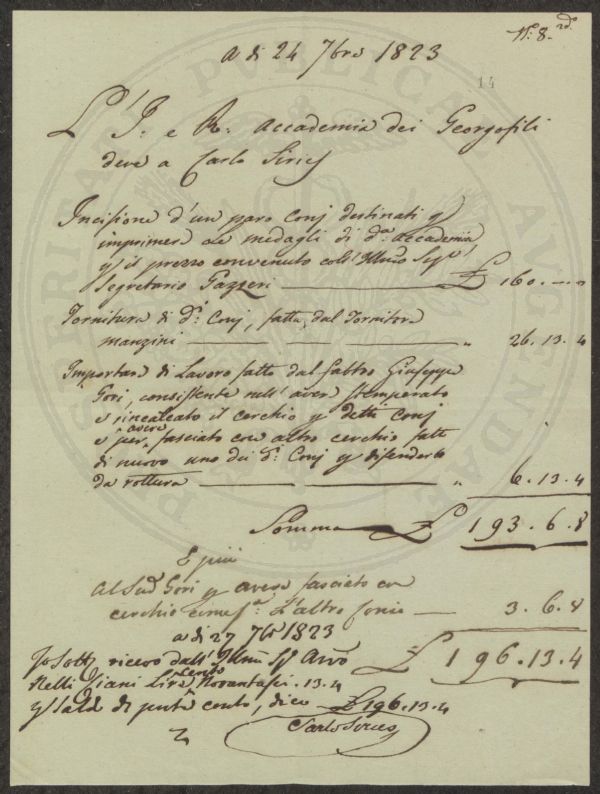 N.° 8. 2d.
A dì 24 7bre 1823
14
L'I. e R. Accademia dei Georgofili
deve a Carlo Siries
Incisione d'un paro Conj destinati p
imprimere le medagli di d.a Accademia
p il prezzo convenuto coll'Illmo Sigr
Segretario Gazzeri £ 160. -. -
Tornitura di d.i Conj, fatta dal Tornitore
Manzini " 26. 13. 4
Importare di Lavoro fatto dal fabbro Giuseppe
Gori, consistente nell'aver stemperato
e rincalcato il cerchio p detti Conj
e per avere fasciato con altro cerchio fatto
di nuovo uno dei d.i Conj p difenderlo
da rottura " 6. 13. 4
Somma £ 193. 6. 8
E più
Al Sud.o Gori p avere fasciato con
cerchio come s.a L'altro Conio 3. 6. 8
a dì 27 7bre 1823
£ 196. 13. 4
Io Sotto ricevo dall'Illmo Sig Avvo
Nelli Lire Cento Novantasei. 13. 4
p Saldo di conto, dico £ 196. 13. 4
Carlo Siries
PROSPERITATI PVBLICAE AVGENDAE